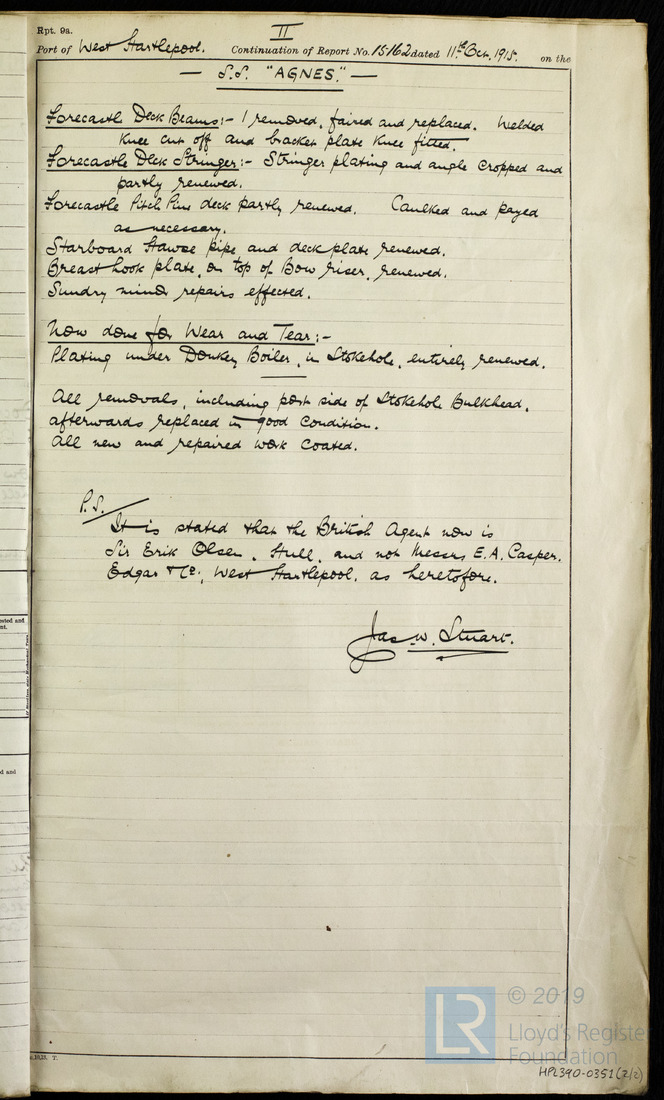 Rpt. 9a.
II
Port of West Hartlepool. Continuation of Report No. 15162 dated 11th Oct. 1915. on the
— S.S. "AGNES." —
Forecastle Deck Beams:- 1 removed, faired and replaced. Welded
knee cut off and bracket plate knee fitted.
Forecastle Deck Stringer:- Stringer plating and angle cropped and
partly renewed.
Forecastle Pitch Pine deck partly renewed. Caulked and payed
as necessary.
Starboard Hawse pipe and deck plate renewed.
Breast hook plate, on top of Bow riser, renewed.
Sundry minor repairs effected.
Now done for Wear and Tear:-
Plating under Donkey Boiler, in Stokehole, entirely renewed.
All removals, including port side of Stokehole Bulkhead,
afterwards replaced in good condition.
All new and repaired work coated.
P.S.
It is stated that the British Agent now is
Sir Erik Olsen, Hull, and not Messrs E.A. Casper,
Edgar & Co., West Hartlepool, as heretofore.
Jas. W. Stuart.
© 2019
LR Lloyd's Register
Foundation
HPL390-0351(2/2)